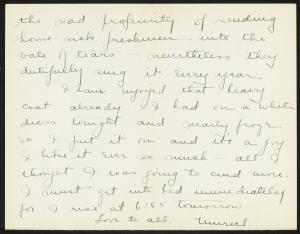 the sad profundity of sending
home sick freshmen into the
vale of tears nevertheless they
dutifully sing it every year.
I have enjoyed that heavy
coat already. I had on a white
dress tonight and nearly froze
so I put it on and it's a joy.
I like it ever so much - all I
thought I was going to and more.
I must get into bed immediately
for I rise at 6:55 tomorrow.
Love to all,